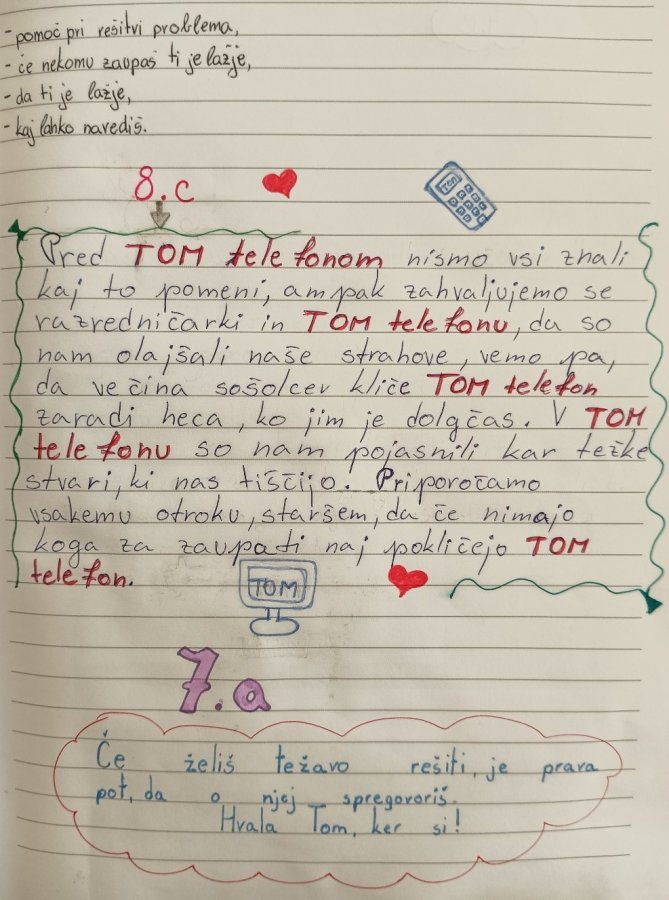 - pomoč pri rešitvi problema,
- če nekomu zaupaš ti je lažje,
- da ti je lažje,
- kaj lahko narediš.
8.c
Pred TOM telefonom nismo vsi znali
kaj to pomeni, ampak zahvaljujemo se
razredničarki in TOM telefonu, da so
nam olajšali naše strahove, vemo pa,
da večina sošolcev kliče TOM telefon
zaradi heca, ko jim je dolgčas. V TOM
telefonu so nam pojasnili kar težke
stvari, ki nas tiščijo. Priporočamo
vsakemu otroku, staršem, da če nimajo
koga za zaupati naj pokličejo TOM
telefon.
TOM
7.a
Če želiš težavo rešiti, je prava
pot, da o njej spregovoriš.
Hvala Tom, ker si!